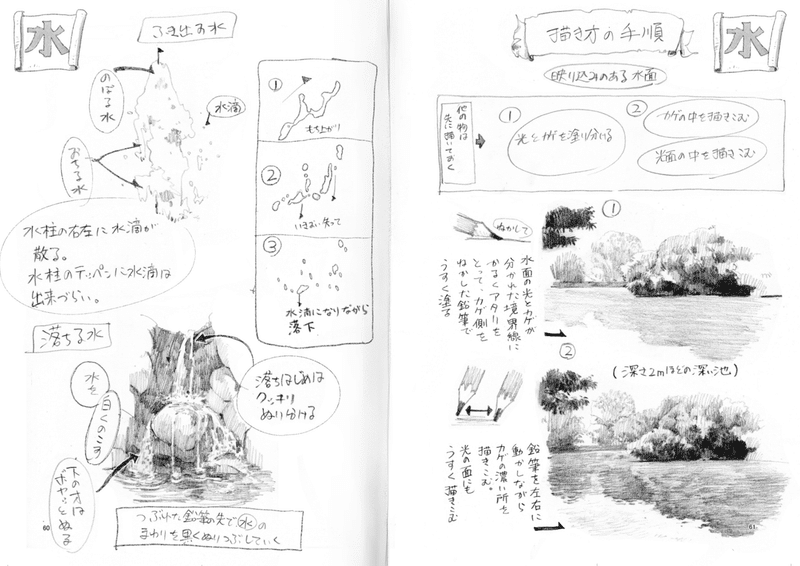 水
ふき出す水
のぼる水
おちる水
水滴
水柱の右左に水滴が
散る。
水柱のテッペンに水滴は
出来づらい。
①
もち上がり
②
いきおい失って
③
水滴になりながら
落下
落ちる水
水を
白くのこす
下の方は
ボヤッとぬる
落ちはじめは
クッキリ
ぬり分ける
つぶれた鉛筆の先で水の
まわりを黒くぬりつぶしていく
60
描き方の手順
水
映り込みのある水面
他の物は
先に描いておく
①
光とカゲを塗り分ける
②
カゲの中を描きこむ
光面の中を描きこむ
ねかして
①
水面の光とカゲが
分かれた境界線に
かるくアタリを
とって、カゲ側を
ねかした鉛筆で
うすく塗る
②
(深さ2mほどの深い池)
鉛筆を左右に
動かしながら
カゲの濃い所を
描きこむ。
光の面にも
うすく描きこむ
61